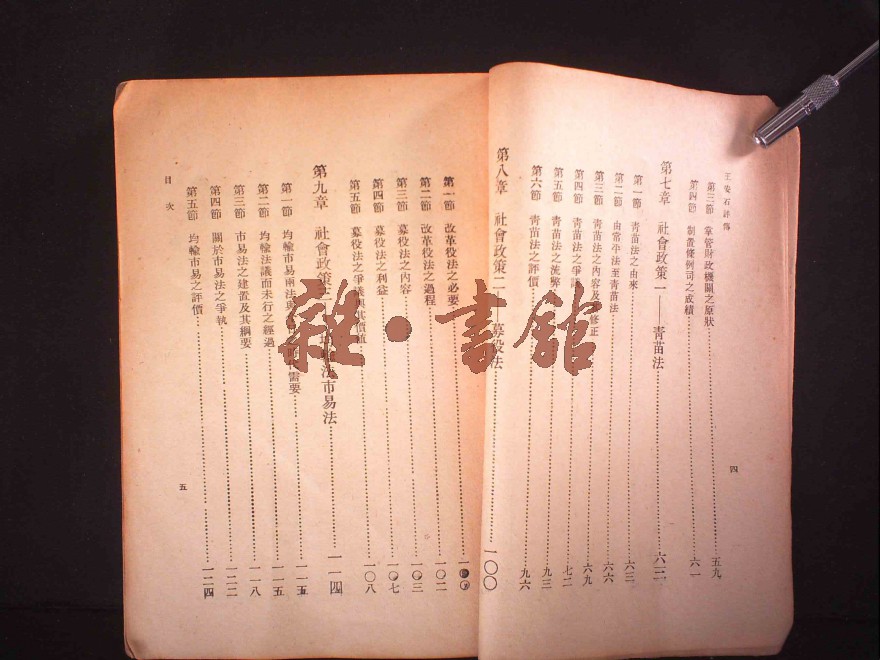 王安石評傳
四
第三節 掌管財政機關之原狀 五九
第四節 制置條例司之成績 六一
第七章 社會政策一——靑苗法 六三
第一節 靑苗法之由來 六三
第二節 由常平法至靑苗法 六六
第三節 靑苗法之內容及 修正 六九
第四節 靑苗法之爭 七二
第五節 靑苗法之流弊 九三
第六節 靑苗法之評價 九六
第八章 社會政策二——募役法 一〇〇
第一節 改革役法之必要
第二節 改革役法之過程 一〇二
第三節 募役法之內容 一〇三
第四節 募役法之利益 一〇七
第五節 募役法之爭議與其價值 一〇八
第九章 社會政策三 法市易法 一一四
第一節 均輸市易兩法 需要 一一五
第二節 均輸法議而未行之經過 一一五
第三節 市易法之建置及其綱要 一一八
第四節 關於市易法之爭執 一二二
第五節 均輸市易之評價 一二四
目次
五
雜·書館